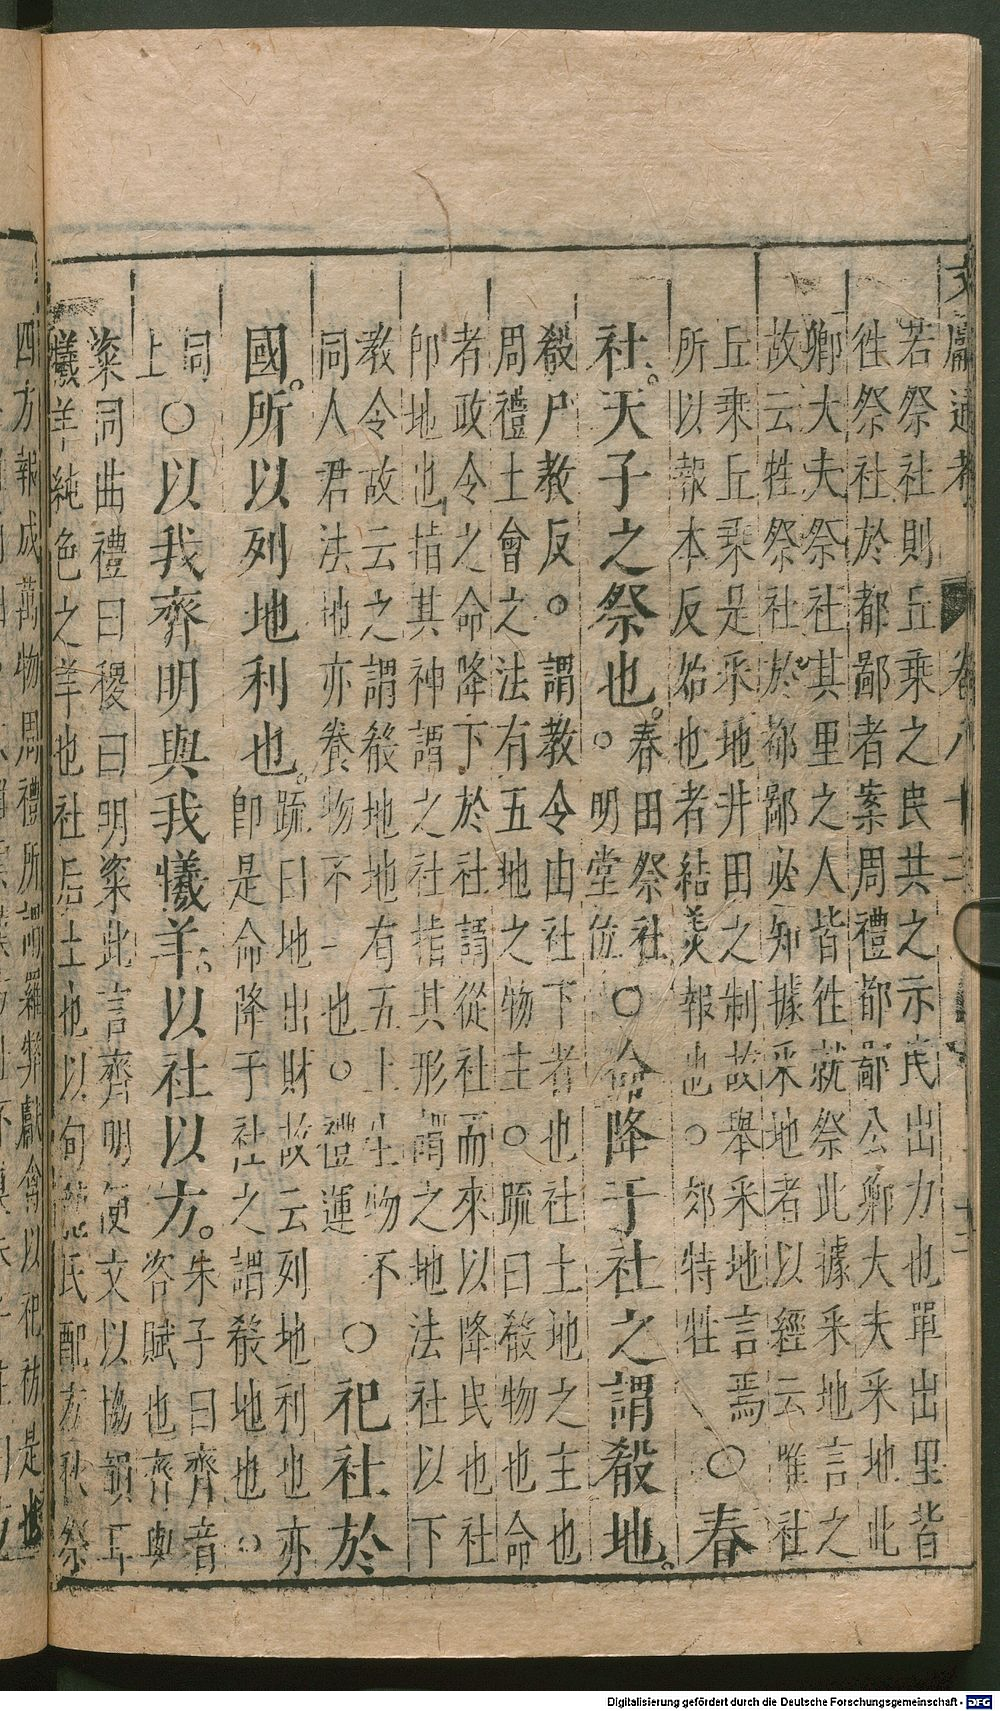 文獻通考 卷八十二 十二
若祭社則丘乘之民共之示民出力也單出里皆
徃祭社於都鄙者案周禮都鄙公卿大夫采地此
卿大夫祭社其里之人皆徃就祭此據采地言之
故云牲祭社於都鄙必知據采地者以經云唯社
丘乘丘乘是采地井田之制故舉采地言焉○春
所以報本反始也者結美報也○郊特牲
社天子之祭也春田祭社○明堂位○命降于社之謂殽地
殽戶教反○謂教令由社下者也社土地之主也
周禮土會之法有五地之物主○疏曰殽物也命
者政令之命降下於社謂從社而來以降民也社
卽地也指其神謂之社指其形謂之地法社以下
教令故云之謂殽地地有五土生物不
同人君法地亦養物不一也○禮運○祀社於
國所以列地利也疏曰地出財故云列地利也亦
卽是命降于社之謂殽地也○
同上○以我齊明與我犧羊以社以方朱子曰齊音
咨賦也齊與
粢同曲禮曰稷曰明粢此言齊明便文以協韻耳
犧羊純色之羊也社后土也以句龍氏配方秋祭
四方報成萬物周禮所謂羅弊獻禽以祀祊是也
Digitalisierung gefördert durch die Deutsche Forschungsgemeinschaft - DFG